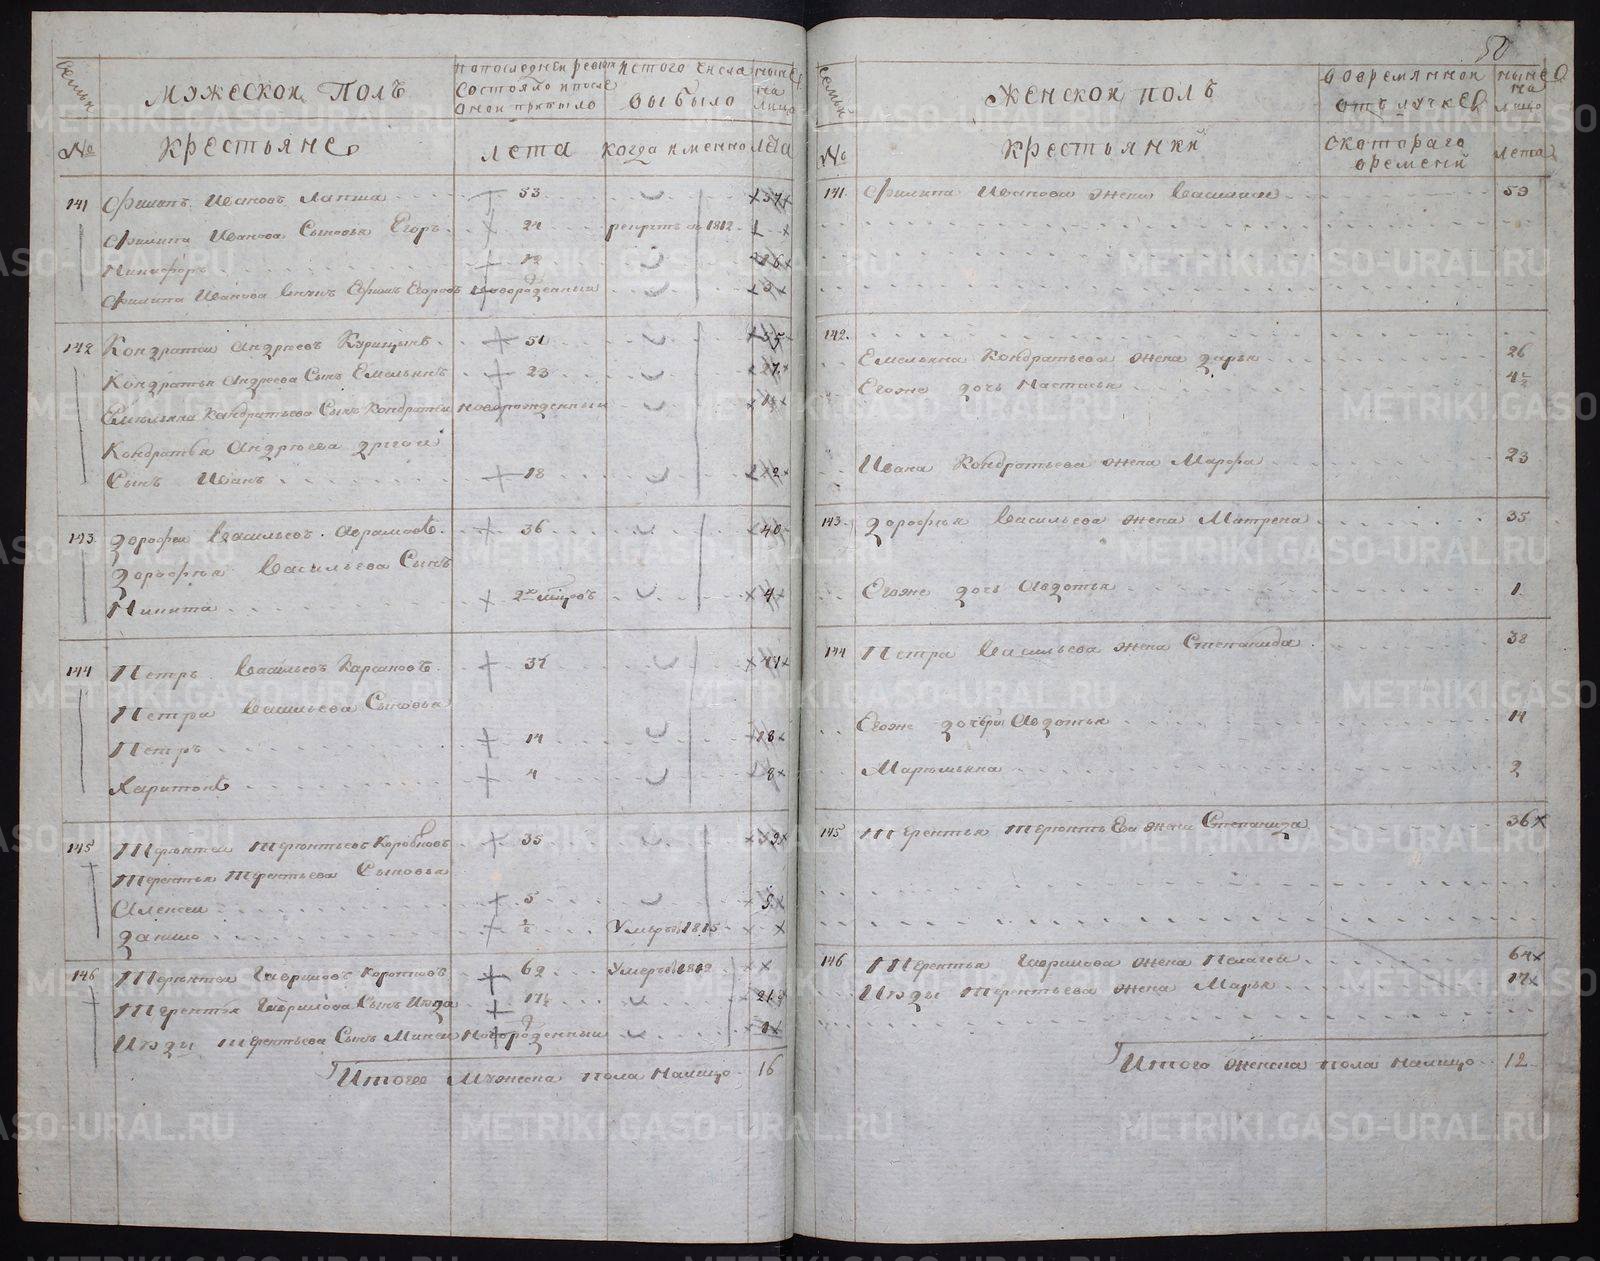 50
семьи
Мужескои Полъ
Попоследнеи ревизии состояло ипосле онои прибыло
Истого числа выбыло
Ныне на лицо
№
Крестьяне
лета
Когда имянно
лета
141 Филипъ Ивановъ Лапша 53 57
Филипа Иванова Сыновья Егоръ 24 рекрутъ в 1812
Никифоръ 12 16
Филипа Иванова внукъ Ефимъ Егоровъ новорожденный 3
142 Кондратеи Андреевъ Курицынъ 51 55
Кондратья Андреева Сынъ Емельянъ 23 27
Емельяна Кондратьева Сынъ Кондратеи новорожденный
Кондратья Андреева другои
Сынъ Иванъ 18 22
143 Дорофеи Васильевъ Аврамовъ 36 40
Дорофея Васильева Сынъ
Никита 4
144 Петръ Васильевъ Карсаковъ 37 41
Петра Васильева Сыновья
Петръ 14 18
Харитонъ 4 8
145 Терентеи Терентьевъ Коровковъ 35 39
Терентья Терентьева Сыновья
Алексеи 5 9
Данило Умеръ 1815
146 Терентеи Гавриловъ Коротковъ 62 Умеръ 1812
Терентья Гаврилова Сынъ Июда 17 21
Июды Терентьева Сынъ Минеи Новорожденный 1
Итого Мужеска пола налицо 16
семьи
Женскои полъ
вовремяннои отлучке
Ныне на лицо
№
Крестьянки
скотораго времени
лета
141 Филипа Иванова жена 53
142.
Емельяна Кондратьева жена Дарья 26
Егоже дочь Настасья 4 1/2
Ивана Кондратьева жена Марфа 23
143 Дорофея Васильева жена Матрена 35
Егоже дочь Авдотья 1
144 Петра Васильева жена Степанида 38
Егоже дочери Авдотья 14
Маремьяна 2
145 Терентья Терентьева жена Степанида 36
146 Терентья Гаврилова жена Пелагея 64
Июды Терентьева жена Марья 17
Итого женска пола налицо 12
METRIKI.GASO-URAL.RU